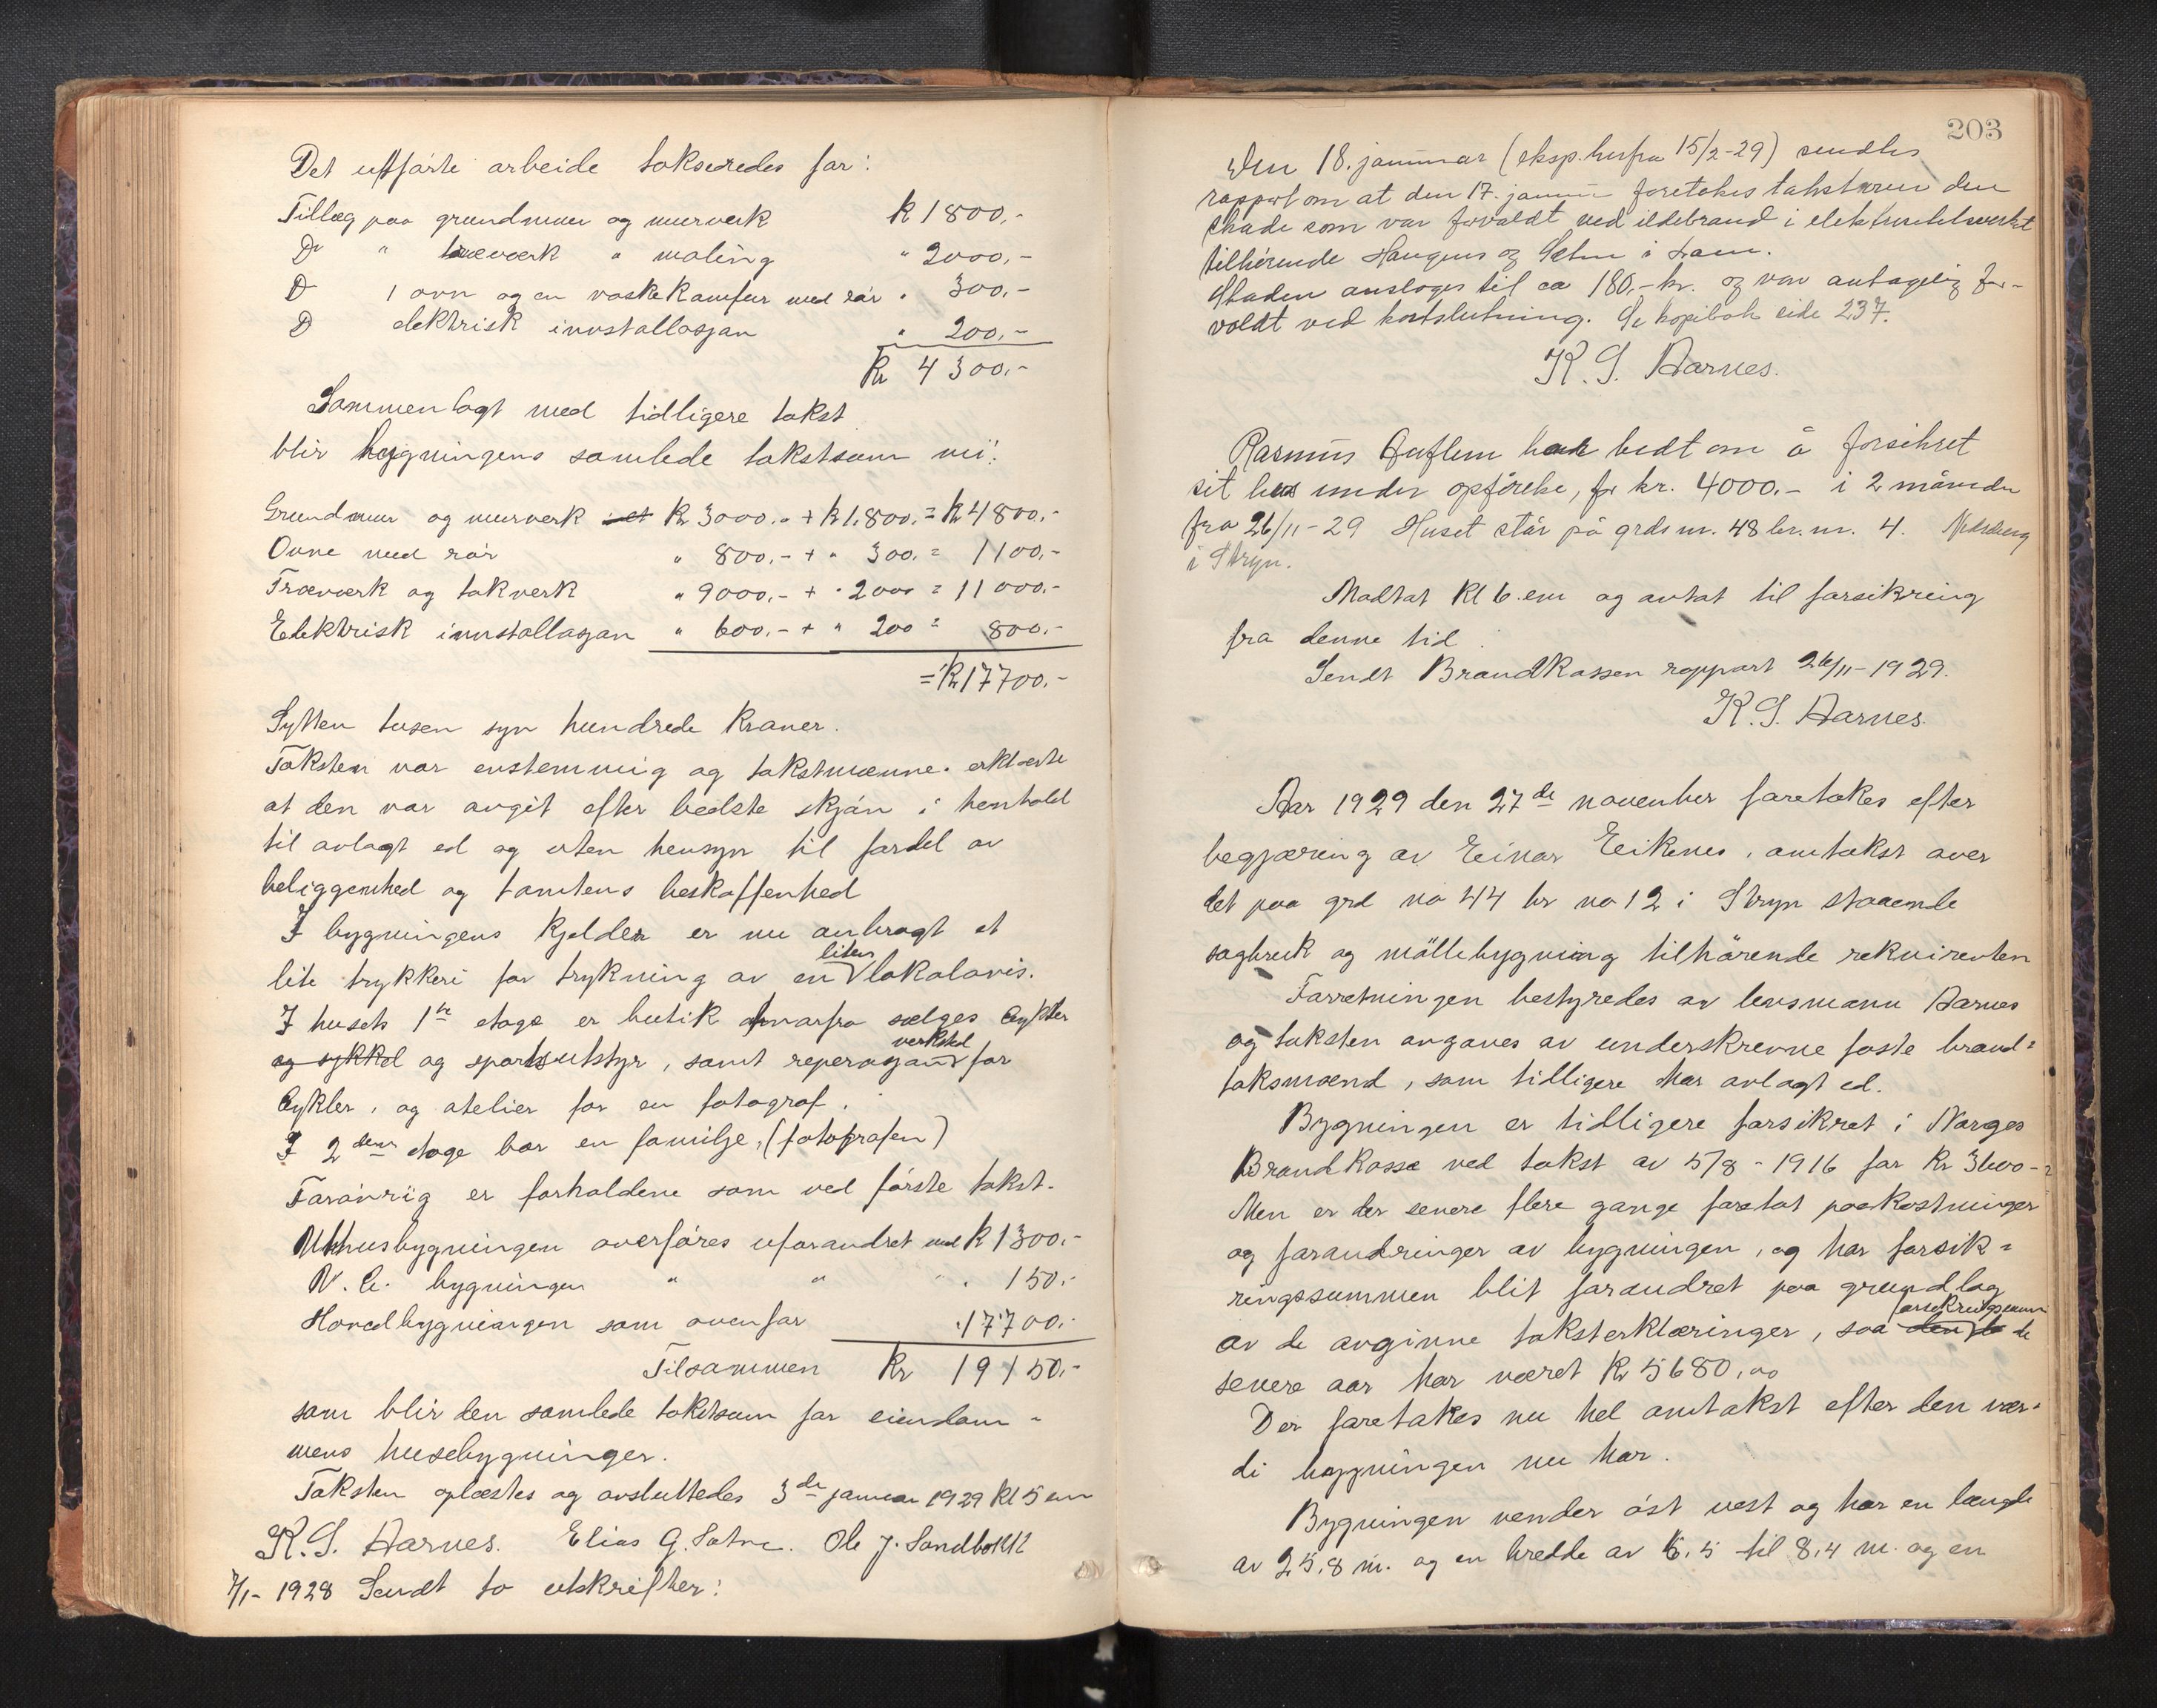 Det utførte arbeide takseredes for:
Tillæg paa grundmuur og murverk k 1800,-
Do " træverk " maling " 2000,-
D 1 ovn og en vaskekamfur med rör " 300,-
D elektrisk innstallasjon " 200,-
Kr 4300,-
Sammenlagt med tidligere takst
blir bygningens samlede takstsum nu:
Grundmur og murverk Kr 3000,- + Kr 1.800,- = Kr 4800,-
Ovne med rör " 800,- + " 300,- = 1100,-
Træverk og takverk " 9000,- + " 2000 = 11000,-
Elektrisk innstallasjon " 600,- + " 200 = 800,-
= Kr 17700,-
Sytten tusen syv hundrede Kroner.
Taksten var enstemmig og takstmænne. erklærte
at den var avgit efter bedste skjön i henhold
til avlagt ed og uten hensyn til fordel av
beliggenhed og tomtens beskaffenhed
I bygningens kjelder er nu anbragt et
lite trykkeri for trykning av en liten lokalavis.
I husets 1ste etage er butik hvorfra sælges Cykler
og sykkel og sportsutstyr, samt reperasjons verksted for
Cykler, og atelier for en fotograf.
I 2den etage bor en familje, (fotografen)
Forövrig er forholdene som ved förste takst.
Uthusbygningen overföres uforandret med Kr 1300,-
V. C. bygningen " " " 150,-
Hovedbygningen som ovenfor 17700,-
Tilsammen Kr 19150,-
som blir den samlede takstsum for eiendom-
mens husebygninger.
Taksten oplæstes og avsluttedes 3de januar 1929 Kl 5 em
K. S. Aarnes. Elias G. Sætre. Ole J. Sandbakk
7/1- 1928 Sendt to utskrifter:
203
Den 18. januar (eksp. herfra 15/2-29) sendtes
rapport om at den 17. januar foretokes takst over den
skade som var forvoldt ved ildebrand i elektricitetsverket
tilhörende Haugens og Sætre i
Skaden ansloges til ca 180,- kr. og var antagelig for-
voldt ved kortslutning. Se kopibok side 237.
K. S. Aarnes.
Rasmus hadde bedt om å forsikret
sit hus under opförelse, for kr. 4000.- i 2 måneder
fra 26/11-29 Huset står på grdsnr. 48 br. nr. 4.
i Stryn.
Modtat Kl 6. em og antat til forsikring
fra denne tid.
Sendt Brandkassen rapport 26/11-1929.
K. S. Aarnes.
Aar 1929 den 27de november foretokes efter
begjæring av Einar Eikenes, omtakst over
det paa grd no 44 br no 12 i Stryn staaende
sagbruk og möllebygning tilhörende rekvirenten
Forretningen bestyredes av lensmann Aarnes
og taksten avgaves av underskrevne faste brand=
taksmænd, som tidligere har avlagt ed.
Bygningen er tidligere forsikret i Norges
Brandkasse ved takst av 5/8-1916 for Kr 3600-
Men er der senere flere gange foretat paakostninger
og forandringer av bygningen, og har forsik=
ringssummen blit forandret paa grundlag
av de avgivne taksterklæringer, saa forsikringssum de
senere aar har været Kr 5680,00
Der foretakes nu hel omtakst efter den vær-
di bygningen nu har.
Bygningen vender öst vest og har en længde
av 25,8 m. og en bredde av 6,5 til 8,4 m. og en